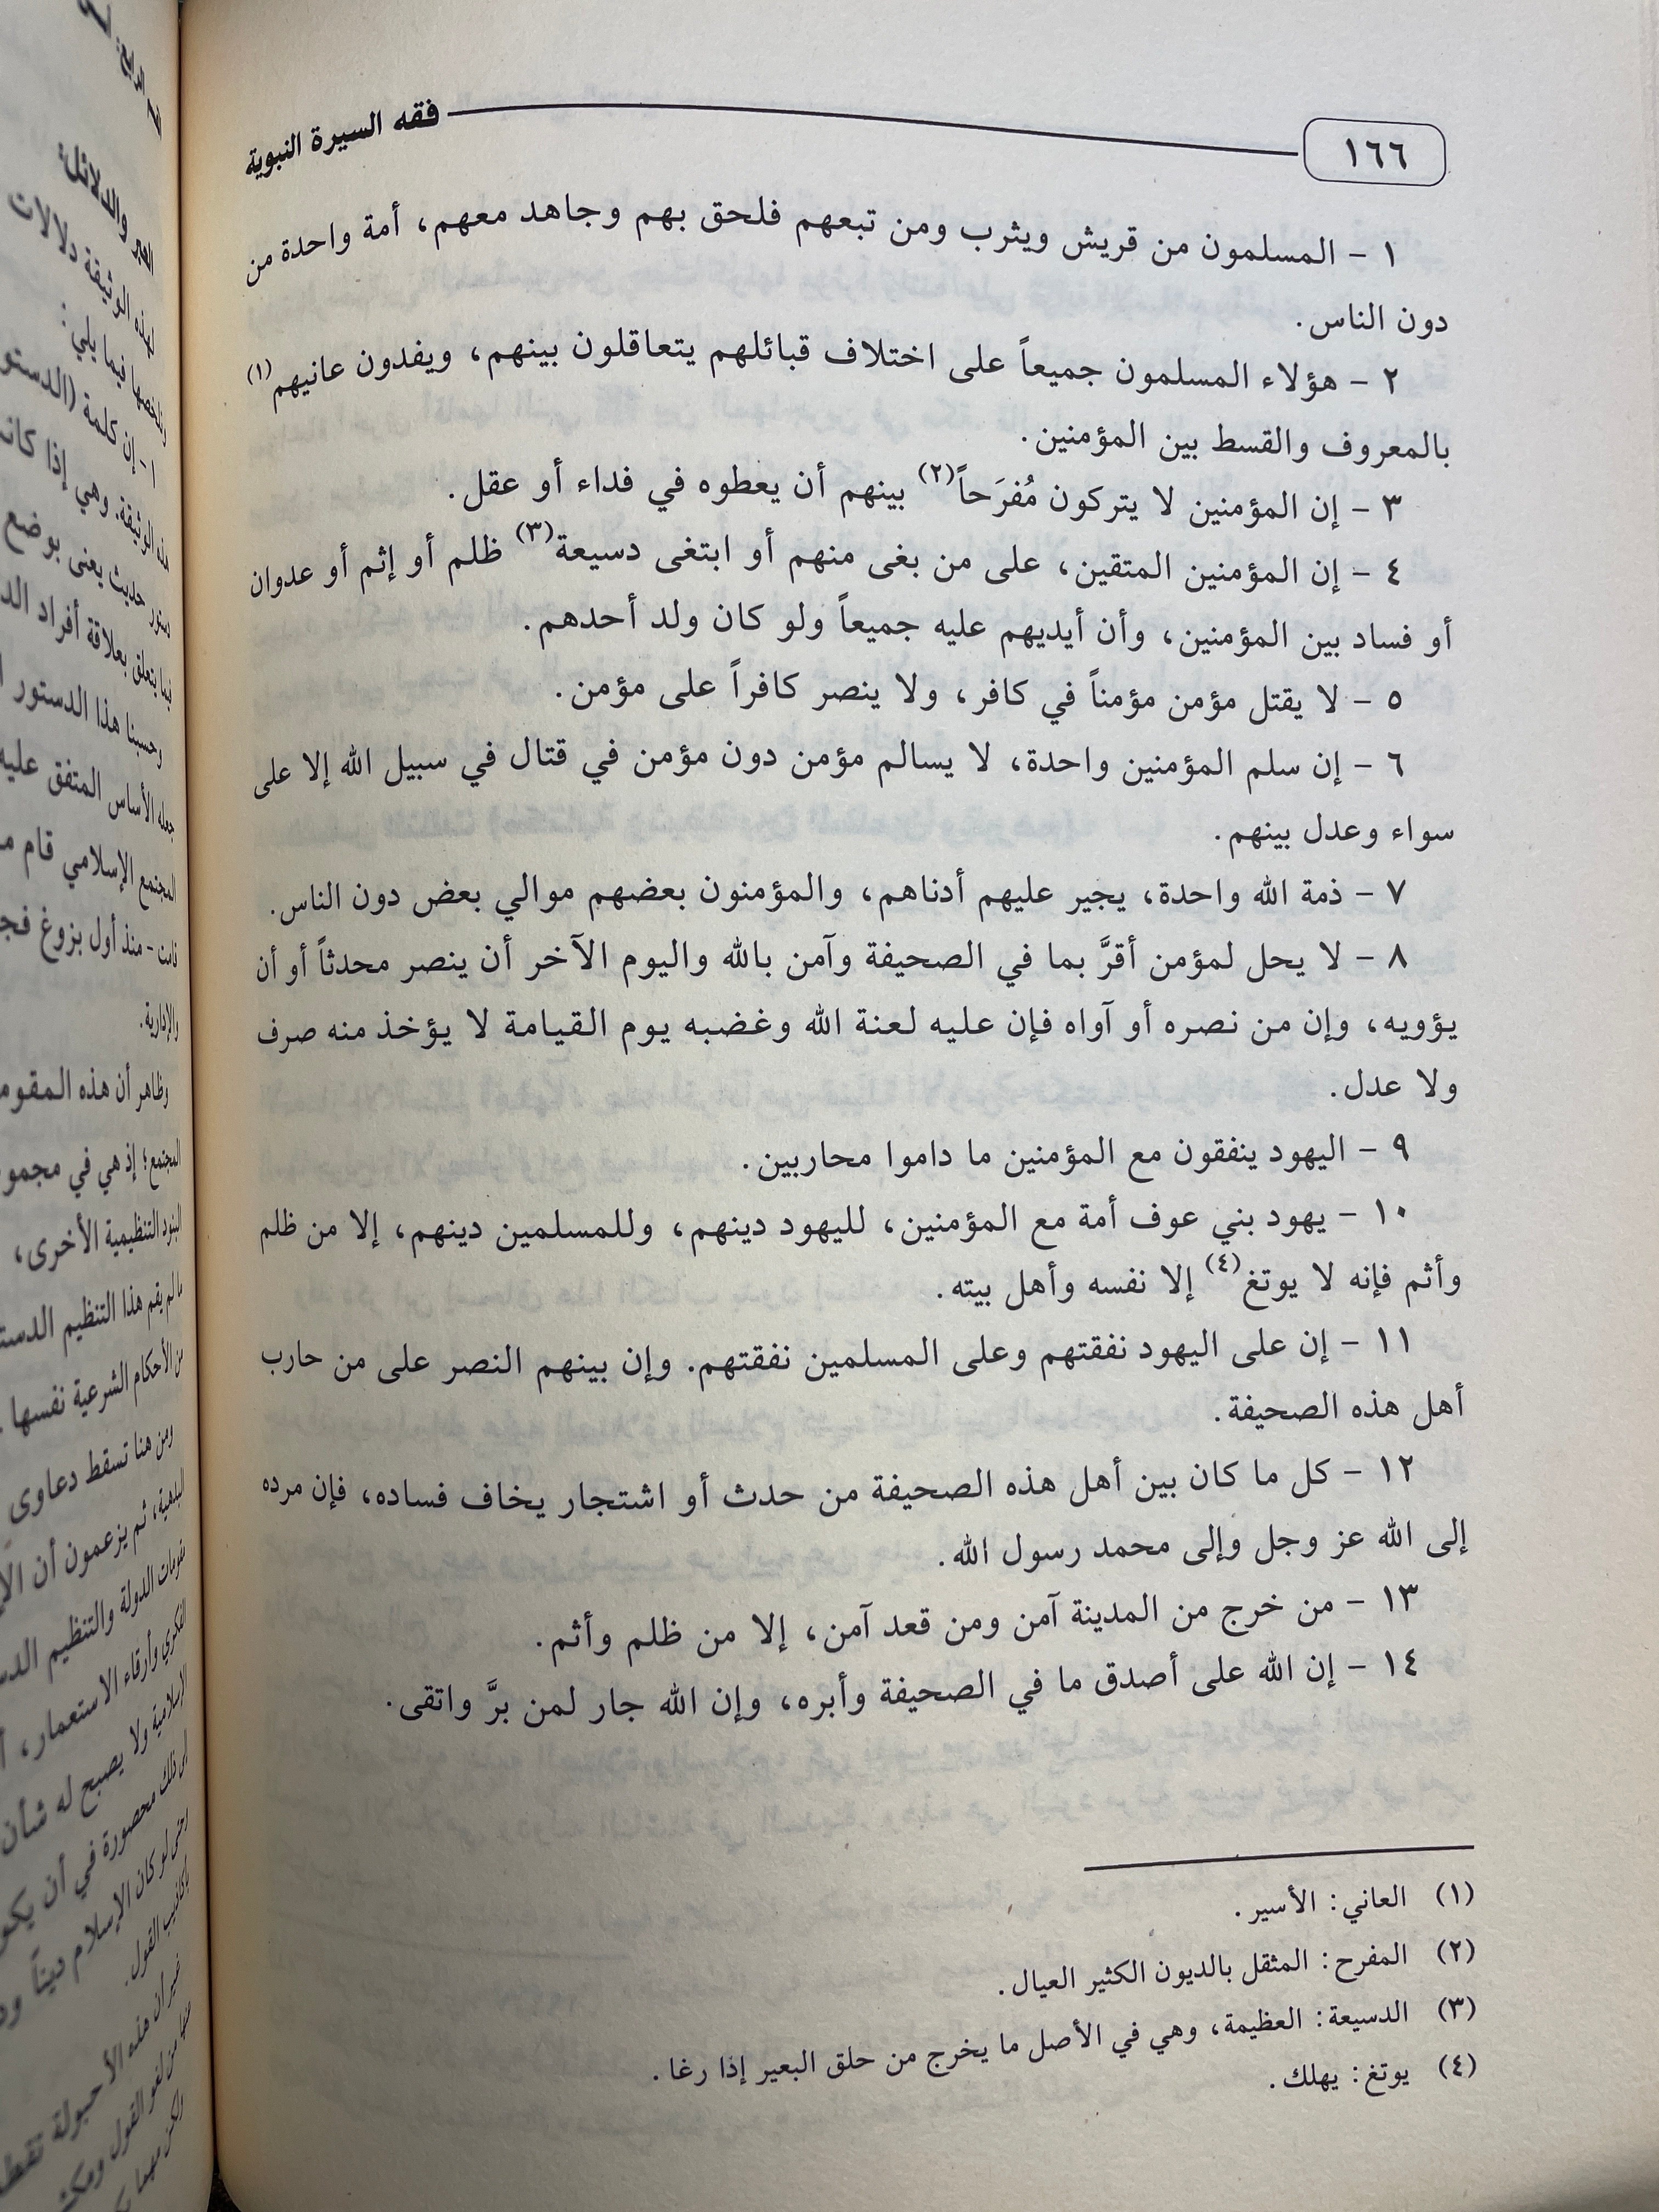 ١٦٦
فقه السيرة النبوية
١ - المسلمون من قريش ويثرب ومن تبعهم فلحق بهم وجاهد معهم، أمة واحدة من
دون الناس.
٢ - هؤلاء المسلمون جميعاً على اختلاف قبائلهم يتعاقلون بينهم، ويفدون عانيهم(١)
بالمعروف والقسط بين المؤمنين.
٣ - إن المؤمنين لا يتركون مُفرَحاً(٢) بينهم أن يعطوه في فداء أو عقل.
٤ - إن المؤمنين المتقين، على من بغى منهم أو ابتغى دسيعة(٣) ظلم أو إثم أو عدوان
أو فساد بين المؤمنين، وأن أيديهم عليه جميعاً ولو كان ولد أحدهم.
٥ - لا يقتل مؤمن مؤمناً في كافر، ولا ينصر كافراً على مؤمن.
٦ - إن سلم المؤمنين واحدة، لا يسالم مؤمن دون مؤمن في قتال في سبيل الله إلا على
سواء وعدل بينهم.
٧ - ذمة الله واحدة، يجير عليهم أدناهم، والمؤمنون بعضهم موالي بعض دون الناس.
٨ - لا يحل لمؤمن أقرَّ بما في الصحيفة وآمن بالله واليوم الآخر أن ينصر محدثاً أو أن
يؤويه، وإن من نصره أو آواه فإن عليه لعنة الله وغضبه يوم القيامة لا يؤخذ منه صرف
ولا عدل.
٩ - اليهود ينفقون مع المؤمنين ما داموا محاربين.
١٠ - يهود بني عوف أمة مع المؤمنين، لليهود دينهم، وللمسلمين دينهم، إلا من ظلم
وأثم فإنه لا يوتغ(٤) إلا نفسه وأهل بيته.
١١ - إن على اليهود نفقتهم وعلى المسلمين نفقتهم. وإن بينهم النصر على من حارب
أهل هذه الصحيفة.
١٢ - كل ما كان بين أهل هذه الصحيفة من حدث أو اشتجار يخاف فساده، فإن مرده
إلى الله عز وجل وإلى محمد رسول الله.
١٣ - من خرج من المدينة آمن ومن قعد آمن، إلا من ظلم وأثم.
١٤ - إن الله على أصدق ما في الصحيفة وأبره، وإن الله جار لمن برَّ واتقى.
(١) العاني: الأسير.
(٢) المفرح: المثقل بالديون الكثير العيال.
(٣) الدسيعة: العظيمة، وهي في الأصل ما يخرج من حلق البعير إذا رغا.
(٤) يوتغ: يهلك.
والدلائل:
الوثيقة دلالات
فيما يلي:
١ - إن كلمة (الدستو
الوثيقة. وهي إذا كانت
حديث يعنى بوضع
يتعلق بعلاقة أفراد الد
وحسبنا هذا الدستور
جعله الأساس المتفق عليه
المجتمع الإسلامي قام
قامت - منذ أول بزوغ فجـ
والإدارية.
وظاهر أن هذه المقوم
المجتمع؛ إذ هي في مجمو
البنود التنظيمية الأخرى،
ما لم يقم هذا التنظيم الدست
من الأحكام الشرعية نفسها.
ومن هنا تسقط دعاوى
ثم يزعمون أن الإ
مقومات الدولة والتنظيم الدس
الفكري وأرقاء الاستعمار،
الإسلامية ولا يصبح له شأن
ذلك محصورة في أن يكو
حتى لو كان الإسلام ديناً
القول.
غير أن هذه الأحبولة تقط
القول
ولكن مهما